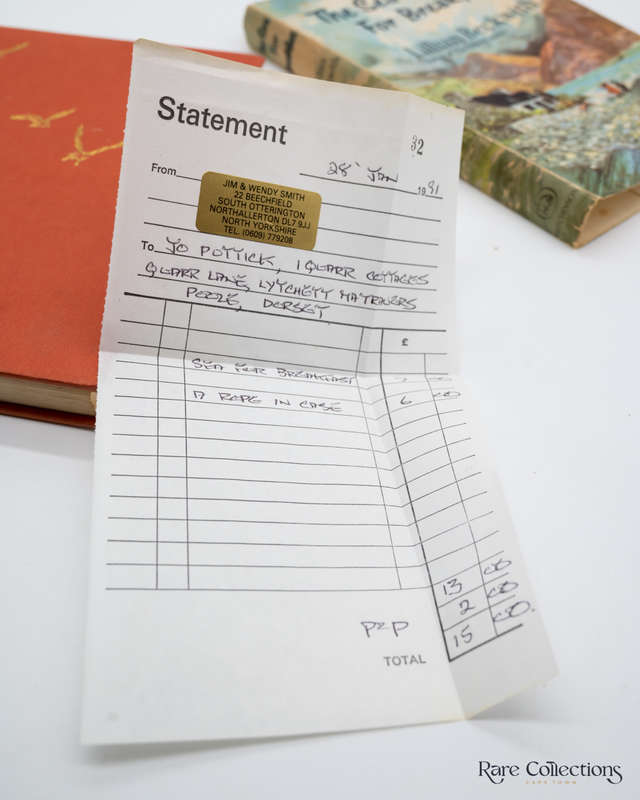 The
For Break
Lillian Beckwith
Statement
32
28 JAN 1991
From
JIM & WENDY SMITH
22 BEECHFIELD
SOUTH OTTERINGTON
NORTHALLERTON DL7 9JJ
NORTH YORKSHIRE
TEL. (0609) 779208
To JO POTTICK, 1 QUARR COTTAGES
QUARR LANE, LYTCHETT MATRAVERS
POOLE, DORSET
£
SEA FOR BREAKFAST
A ROPE IN CASE 6 00
13 00
P+P 2 00
TOTAL 15 00
RARE COLLECTIONS
CAPE TOWN